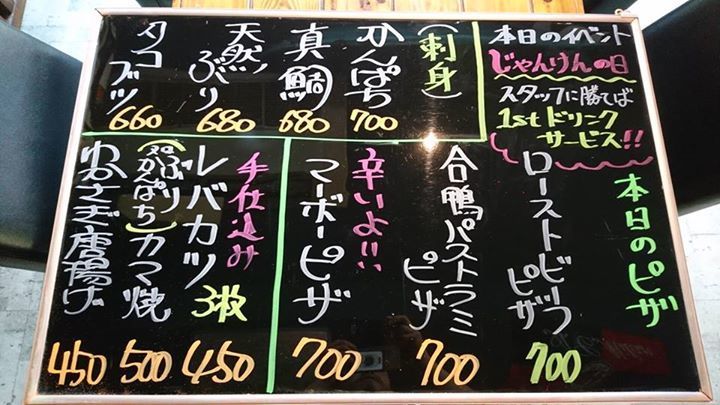 本日のイベント
じゃんけんの日
スタッフに勝てば
1stドリンク
サービス!!
(刺身)
かんぱち
700
真鯛
680
天然ぶり
680
タコブツ
660
本日のピザ
ローストビーフ
ピザ
700
合鴨パストラミ
ピザ
700
辛いよ!!
マーボーピザ
700
手仕込み
レバカツ
3枚
450
(ぶり
かんぱち)カマ焼
500
わかさぎ唐揚げ
450